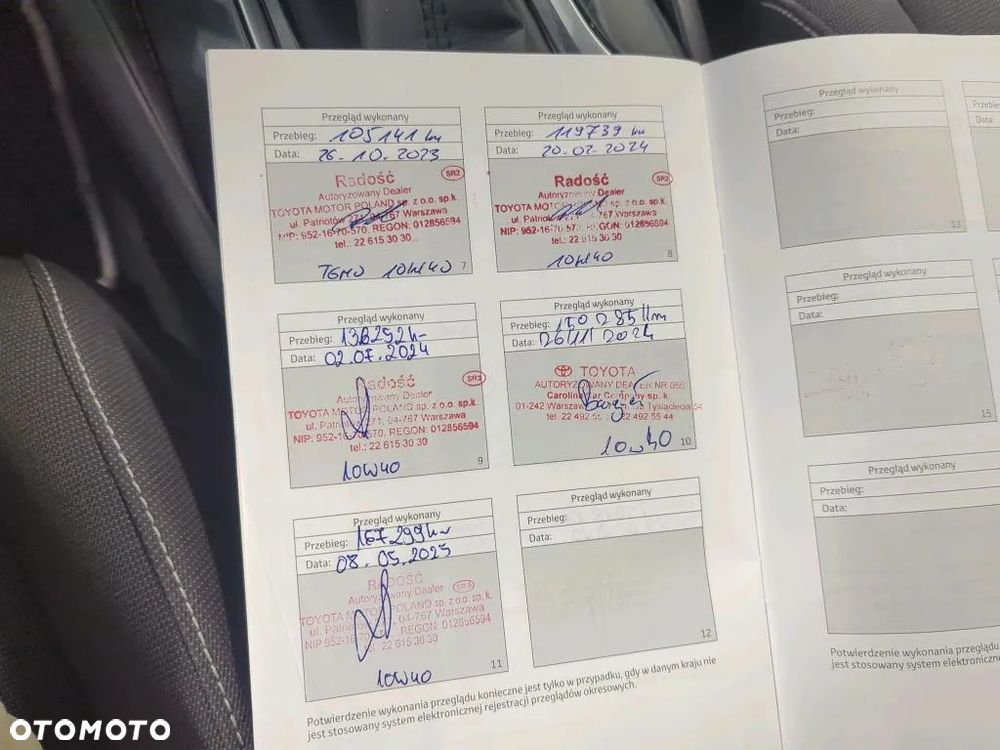 Przegląd wykonany
Przebieg: 105141 km
Data: 26.10.2023
Radość SR2
Autoryzowany Dealer
TOYOTA MOTOR POLAND sp. z o.o. sp.k.
ul. Patriotów 271, 04-767 Warszawa
NIP: 952-16-70-570, REGON: 012856594
tel.: 22 615 30 30
10W40
7
Przegląd wykonany
Przebieg: 119739 km
Data: 20.02.2024
Radość SR2
Autoryzowany Dealer
TOYOTA MOTOR POLAND sp. z o.o. sp.k.
ul. Patriotów 04-767 Warszawa
NIP: 952-16-70-570, REGON: 012856594
tel.: 22 615 30 30
10W40
8
Przegląd wykonany
Przebieg: 136292 km
Data: 02.07.2024
Radość SR3
Autoryzowany Dealer
TOYOTA MOTOR POLAND sp. z o.o. sp.k.
ul. Patriotów 271, 04-767 Warszawa
NIP: 952-16-70-570, REGON: 012856594
tel.: 22 615 30 30
10W40
9
Przegląd wykonany
Przebieg: 150285 km
Data: 26/11/2024
TOYOTA
AUTORYZOWANY DEALER NR 056
Carolina Car Company sp. k.
01-242 Warszawa, Tysiąclecia
tel. 22 492 55 44
10W40
10
Przegląd wykonany
Przebieg: 167299 km
Data: 08.05.2025
RADOŚĆ SR9
Autoryzowany Dealer
TOYOTA MOTOR POLAND sp. z o.o. sp.k.
ul. Patriotów 04-767 Warszawa
NIP 952-16-70 REGON: 012856594
tel. 22 615 30 30
10W40
11
Przegląd wykonany
Przebieg:
Data:
12
Potwierdzenie wykonania przeglądu konieczne jest tylko w przypadku, gdy w danym kraju nie
jest stosowany system elektronicznej rejestracji przeglądów okresowych.
Przegląd wykonany
Przebieg:
Data:
13
Przebieg:
Data:
Przegląd wykonany
Przebieg:
Data:
15
Przegląd wykonany
Przebieg:
Data:
Potwierdzenie wykonania przeglądu
jest stosowany system elektroniczne
OTOMOTO